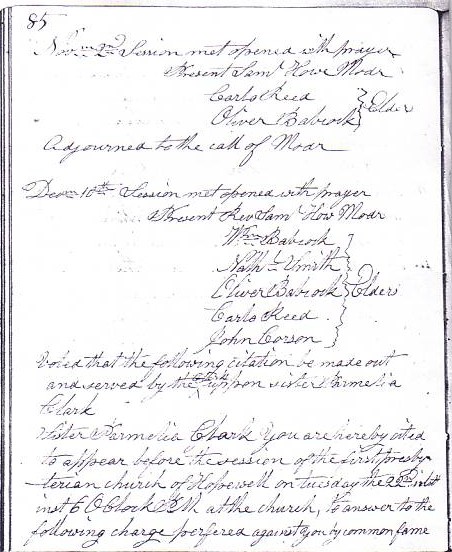 85
Nov 2nd Session met opened with prayer
Present Saml How Modr
Carlo Reed
Oliver Babcock } Elder
Adjourned to the call of Modr
Decm 10th Session met opened with prayer
Present Rev Saml How Modr
Wm Babcock
Nathl Smith
Oliver Babcock } Elders
Carlo Reed
John Corson
Voted that the following citation be made out
and served by the Clk uppon sister Parmelia
Clark
Sister Parmelia Clark You are hereby cited
to appear before the session of the first presby-
terian church of Hopewell on tuesday the 22d
inst 6 OClock P.M at the church, to answer to the
following charge perfered against you by common fame